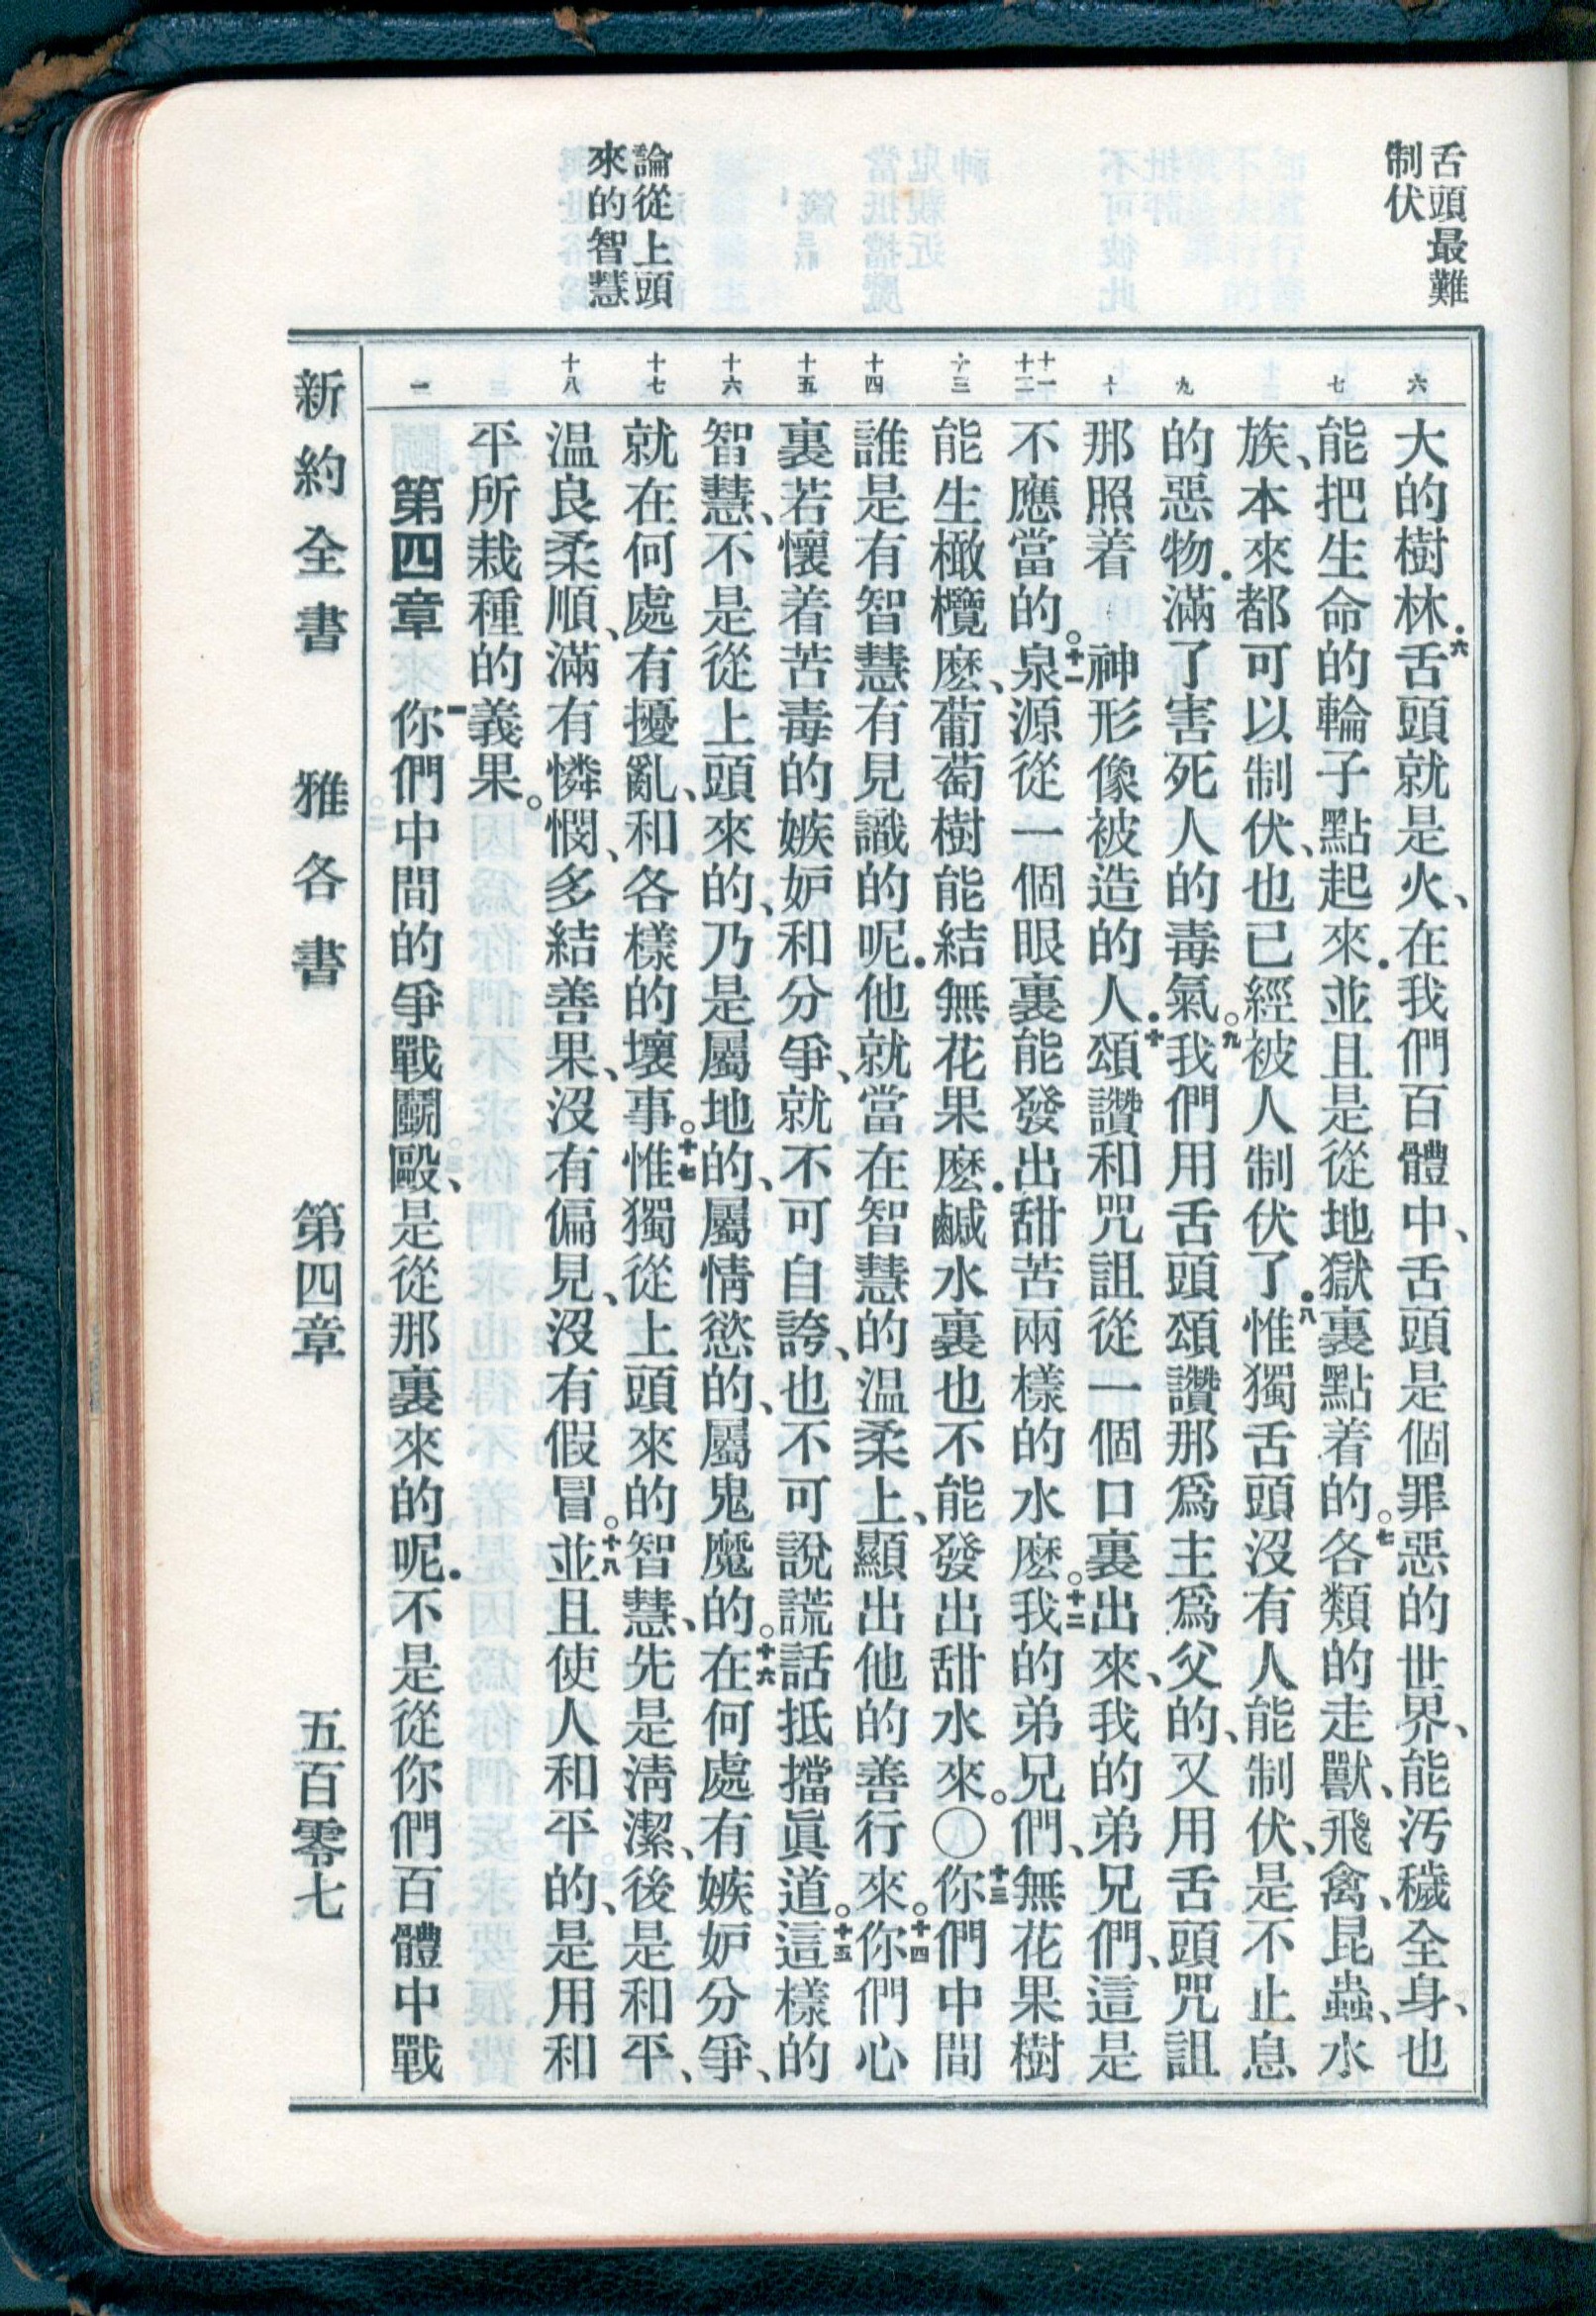 舌頭最難
制伏
論從上頭
來的智慧
六
七
九
十
十一
十二
十三
十四
十五
十六
十七
十八
一
大的樹林．六舌頭就是火、在我們百體中、舌頭是個罪惡的世界、能汚穢全身、也
能把生命的輪子點起來．並且是從地獄裏點着的。七各類的走獸、飛禽、昆蟲、水
族、本來都可以制伏、也已經被人制伏了．八惟獨舌頭沒有人能制伏、是不止息
的惡物．滿了害死人的毒氣。九我們用舌頭頌讚那爲主爲父的、又用舌頭咒詛
那照着　神形像被造的人．十頌讚和咒詛從一個口裏出來、我的弟兄們、這是
不應當的。十一泉源從一個眼裏能發出甜苦兩樣的水麽。十二我的弟兄們、無花果樹
能生橄欖麽、葡萄樹能結無花果麽．鹹水裏也不能發出甜水來。〇十三你們中間
誰是有智慧有見識的呢．他就當在智慧的温柔上、顯出他的善行來。十四你們心
裏若懷着苦毒的嫉妒和分爭、就不可自誇、也不可說謊話抵擋眞道。十五這樣的
智慧、不是從上頭來的、乃是屬地的、屬情慾的、屬鬼魔的。十六在何處有嫉妒分爭、
就在何處有擾亂、和各樣的壞事。十七惟獨從上頭來的智慧、先是淸潔、後是和平、
温良柔順、滿有憐憫、多結善果、沒有偏見、沒有假冒。十八並且使人和平的、是用和
平所栽種的義果。
第四章　一你們中間的爭戰鬭毆、是從那裏來的呢．不是從你們百體中戰
新約全書　雅各書　第四章　五百零七